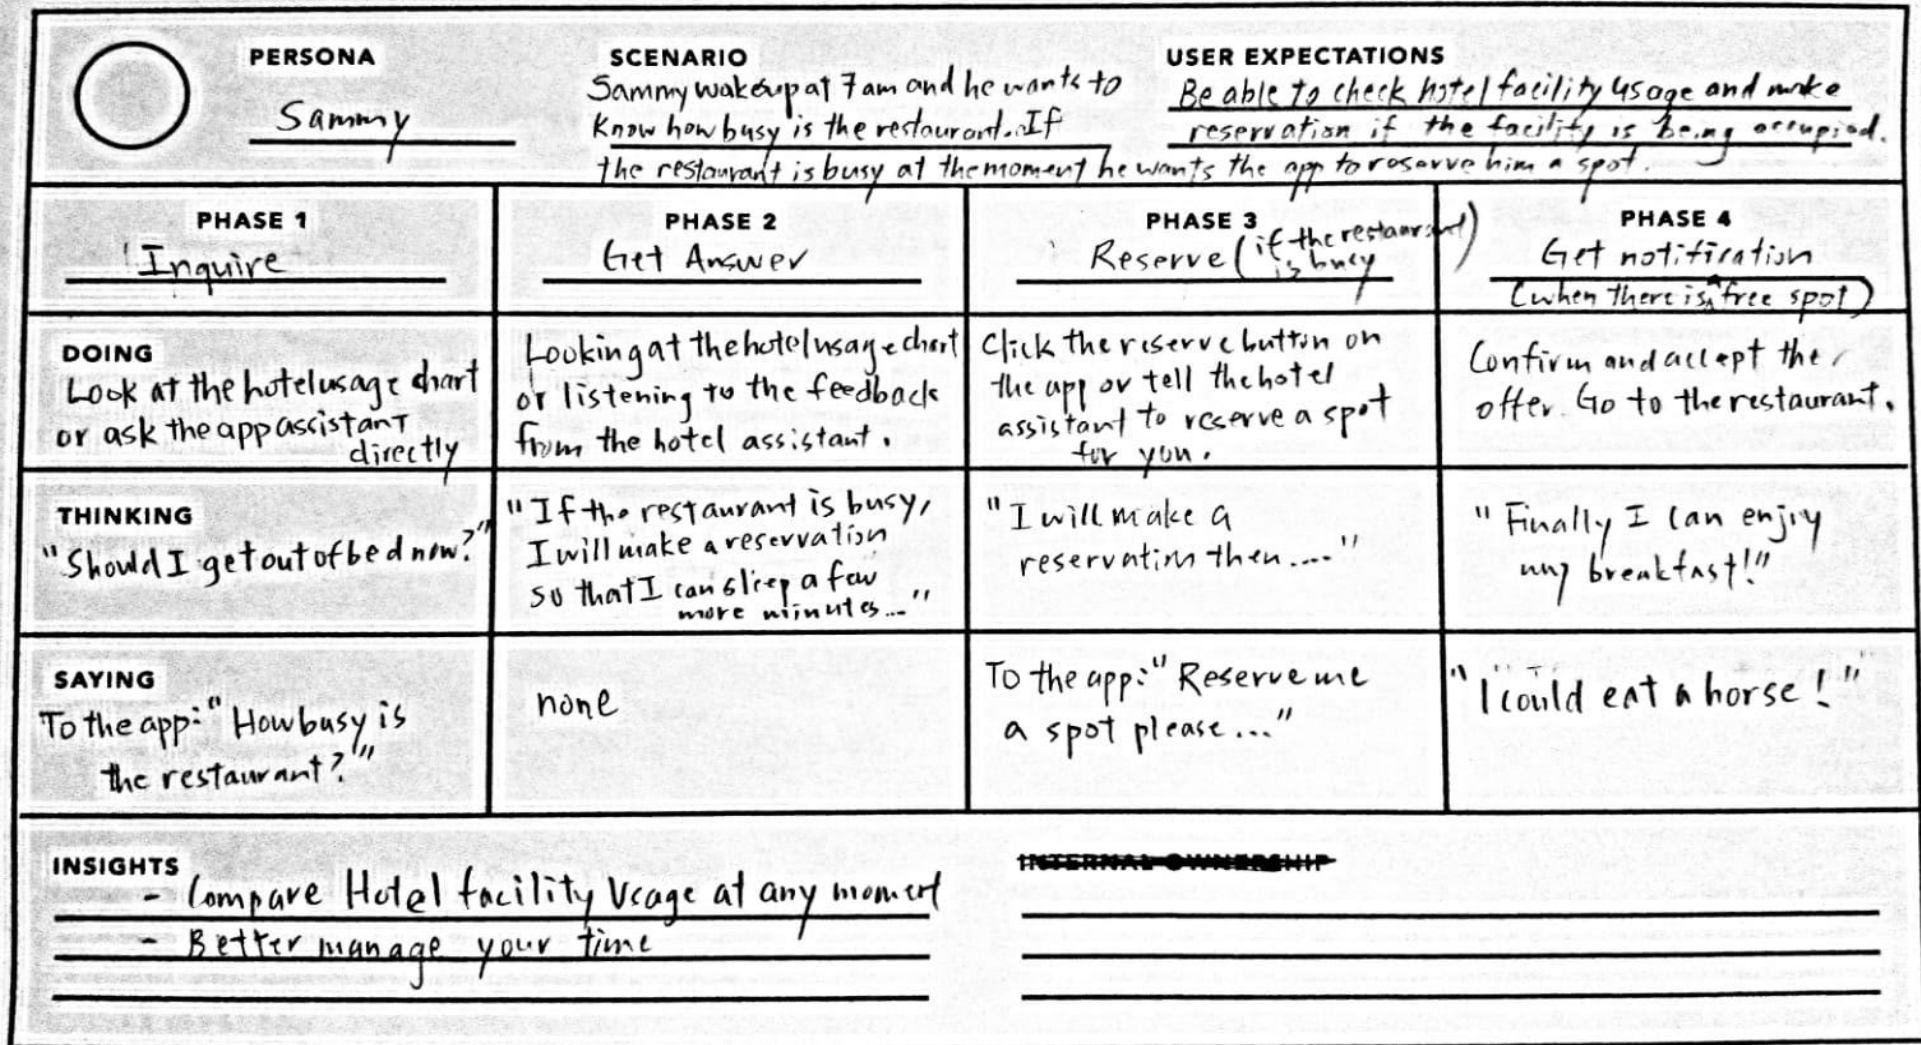 PERSONA
Sammy
SCENARIO
Sammy wakeup at 7 am and he wants to
know how busy is the restaurant. If
the restaurant is busy at the moment he wants the app to reserve him a spot.
USER EXPECTATIONS
Be able to check hotel facility usage and make
reservation if the facility is being occupied.
PHASE 1
Inquire
PHASE 2
Get Answer
PHASE 3
Reserve (if the restaurant)
is busy
PHASE 4
Get notification
(when there is ^ free spot)
DOING
Look at the hotel usage chart
or ask the app assistant
directly
Looking at the hotel usage chart
or listening to the feedback
from the hotel assistant.
Click the reserve button on
the app or tell the hotel
assistant to reserve a spot
for you.
Confirm and accept the
offer. Go to the restaurant.
THINKING
"Should I get out of bed now?"
"If the restaurant is busy,
I will make a reservation
so that I can sleep a few
more minutes..."
"I will make a
reservation then...."
"Finally I can enjoy
my breakfast!"
SAYING
To the app: "How busy is
the restaurant?"
none
To the app: "Reserve me
a spot please..."
"I could eat a horse!"
INSIGHTS
- Compare Hotel facility Usage at any moment
- Better manage your time
INTERNAL OWNERSHIP